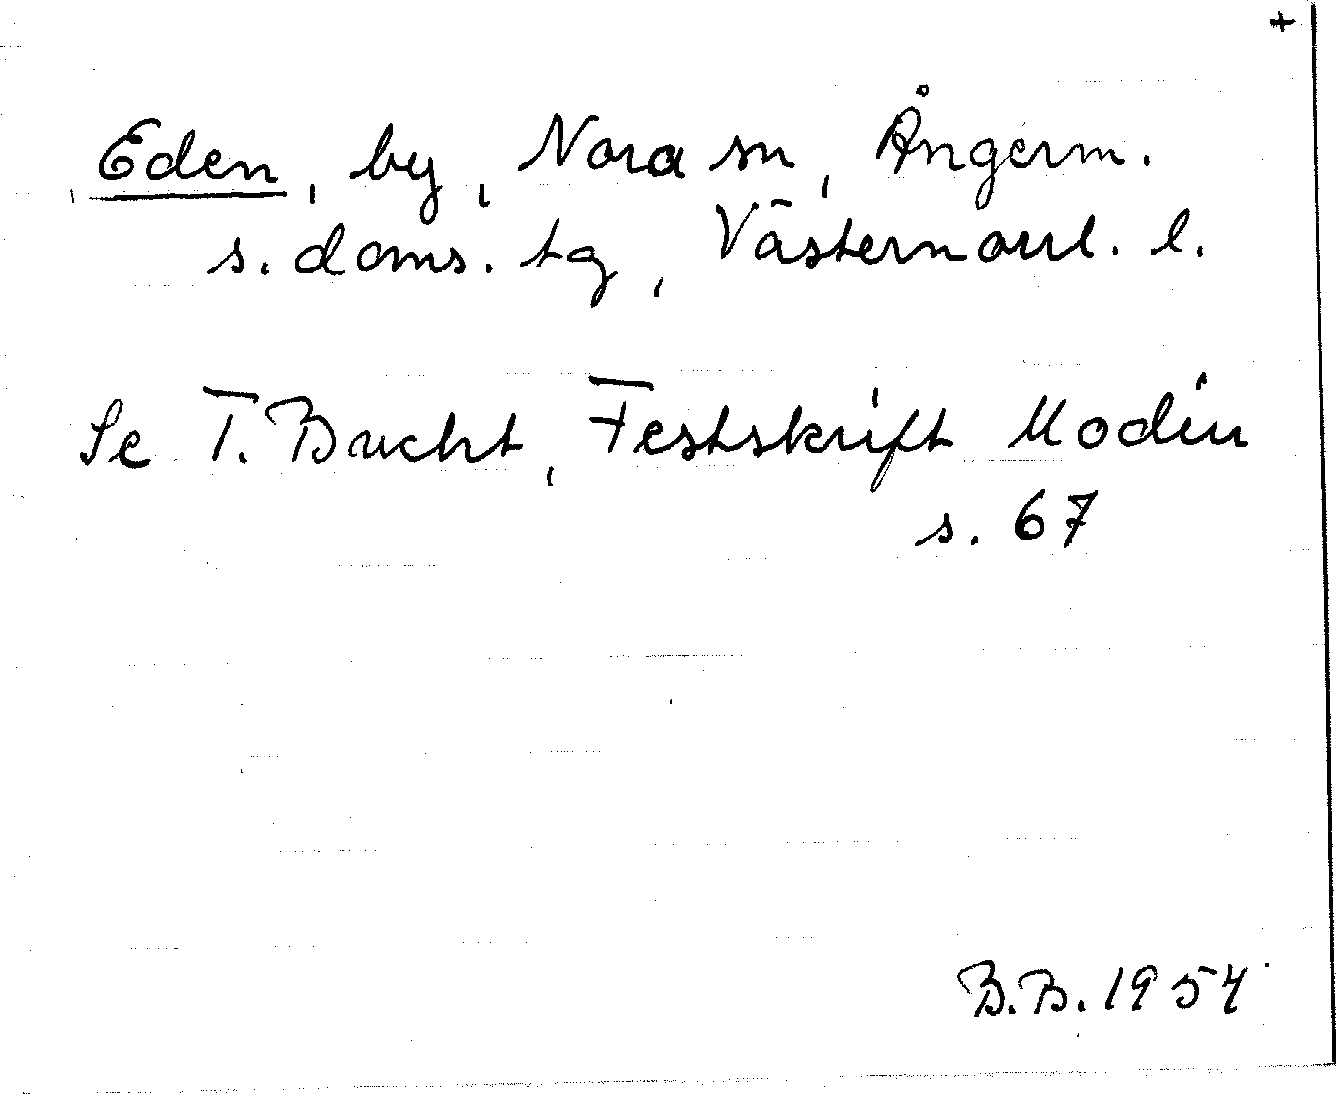 +
Eden, by, Nora sn, Ångerm.
s. doms. tg, Västernorrl. l.
Se T. Bucht, Festskrift Modin
s. 67
B.B. 1954